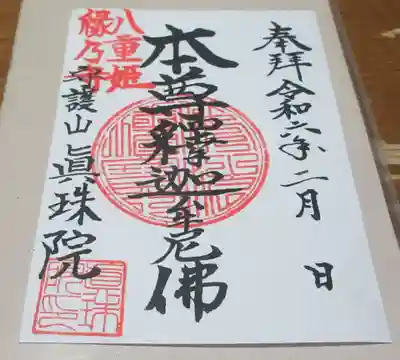 奉拝 令和六年二月 日
本尊釋迦牟尼佛
八重姫
縁乃寺
守護山 眞珠院